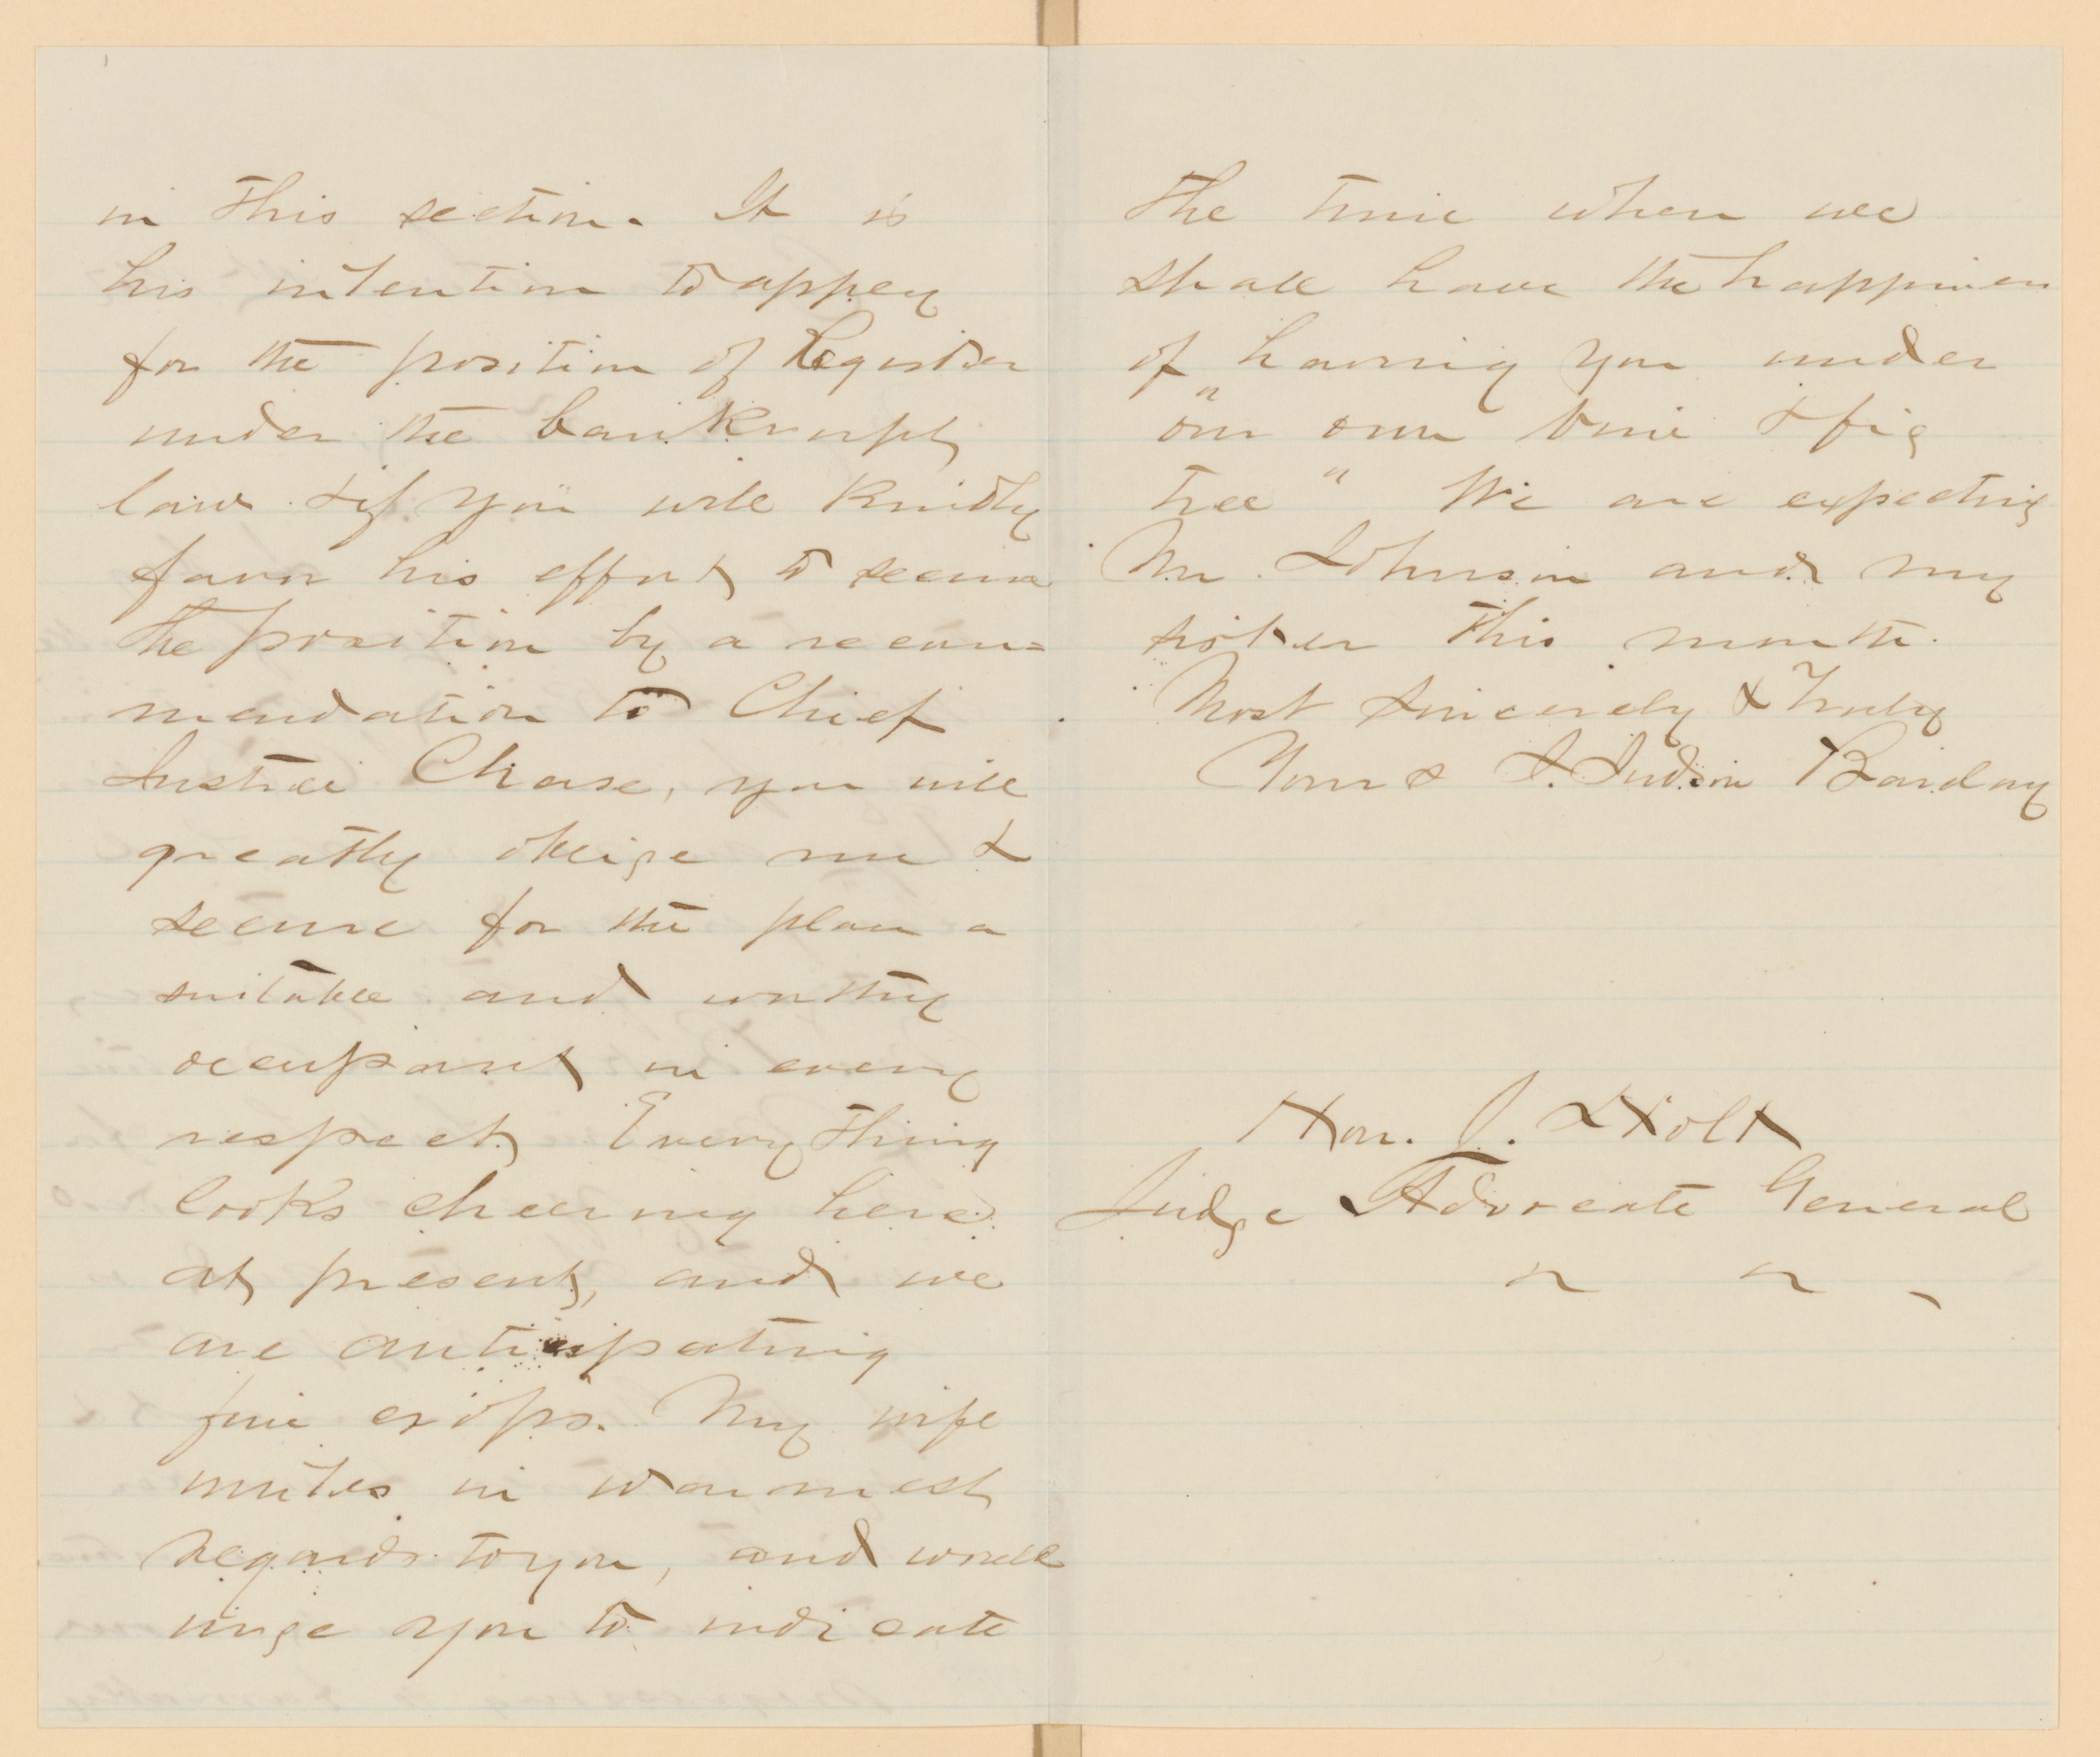 in this section. It is
his intention to apply
for the position of Register
under the bankrupt
law & if you will kindly
favor his effort to secure
the position by a recom=
mendation to Chief
Justice Chase, you will
greatly oblige me &
secure for the place a
suitable and worthy
occupant in every
respect. Everything
looks cheering here
at present, and we
are anticipating
fine crops. My wife
unites in warmest
regards to you, and would
urge you to indicate
the time when we
shall have the happiness
of having you under
"our own vine & fig
tree" We are expecting
Mr. Johnson and my
sister this month.
Most sincerely & truly
Yours J. Judson Barclay
Hon. J. Holt
Judge Advocate General